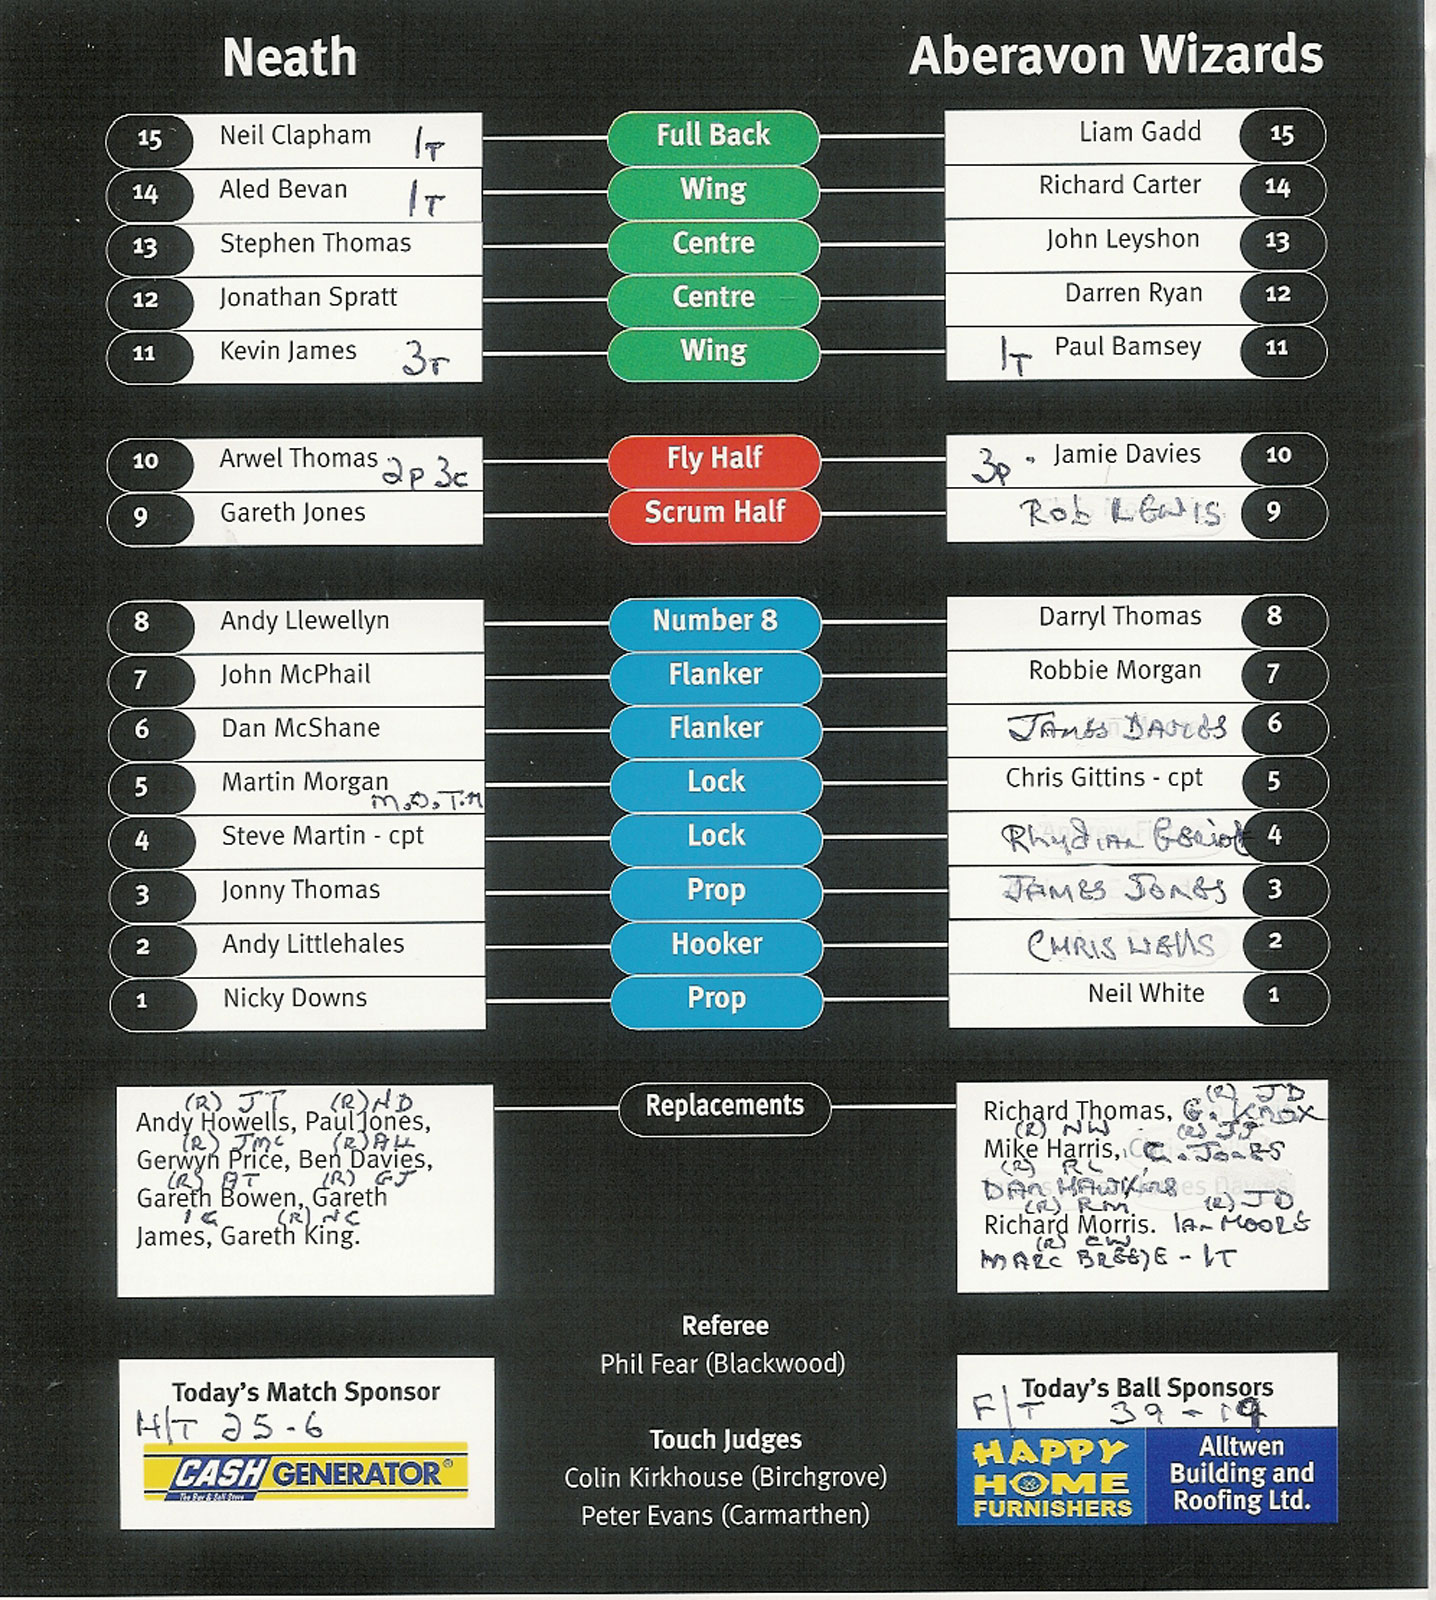 Neath
Aberavon Wizards
15 Neil Clapham 1T Full Back Liam Gadd 15
14 Aled Bevan 1T Wing Richard Carter 14
13 Stephen Thomas Centre John Leyshon 13
12 Jonathan Spratt Centre Darren Ryan 12
11 Kevin James 3T Wing 1T Paul Bamsey 11
10 Arwel Thomas 2p 3c Fly Half 3p Jamie Davies 10
9 Gareth Jones Scrum Half Rob LEWIS 9
8 Andy Llewellyn Number 8 Darryl Thomas 8
7 John McPhail Flanker Robbie Morgan 7
6 Dan McShane Flanker JAMES DAVIES 6
5 Martin Morgan M.O.T.M Lock Chris Gittins - cpt 5
4 Steve Martin - cpt Lock RhydIAN 4
3 Jonny Thomas Prop JAMES JONES 3
2 Andy Littlehales Hooker CHRIS WEllS 2
1 Nicky Downs Prop Neil White 1
Replacements
(R) JT (R) ND
Andy Howells, Paul Jones,
(R) JMC (R) ALL
Gerwyn Price, Ben Davies,
(R) AT (R) GJ
Gareth Bowen, Gareth
1C (R) NC
James, Gareth King.
(R) JD
Richard Thomas, G. KNOX
(R) NW (R) JJ
Mike Harris, G. JONES
(R) RL
DAN HAWKINS
(R) RM (R) JD
Richard Morris. IAN MOORE
(R) CW
MARC BREEZE - 1T
Referee
Phil Fear (Blackwood)
Touch Judges
Colin Kirkhouse (Birchgrove)
Peter Evans (Carmarthen)
Today's Match Sponsor
H/T 25-6
CASH GENERATOR®
The Buy & Sell Store
Today's Ball Sponsors
F/T 39-19
HAPPY
HOME
FURNISHERS
Alltwen
Building and
Roofing Ltd.